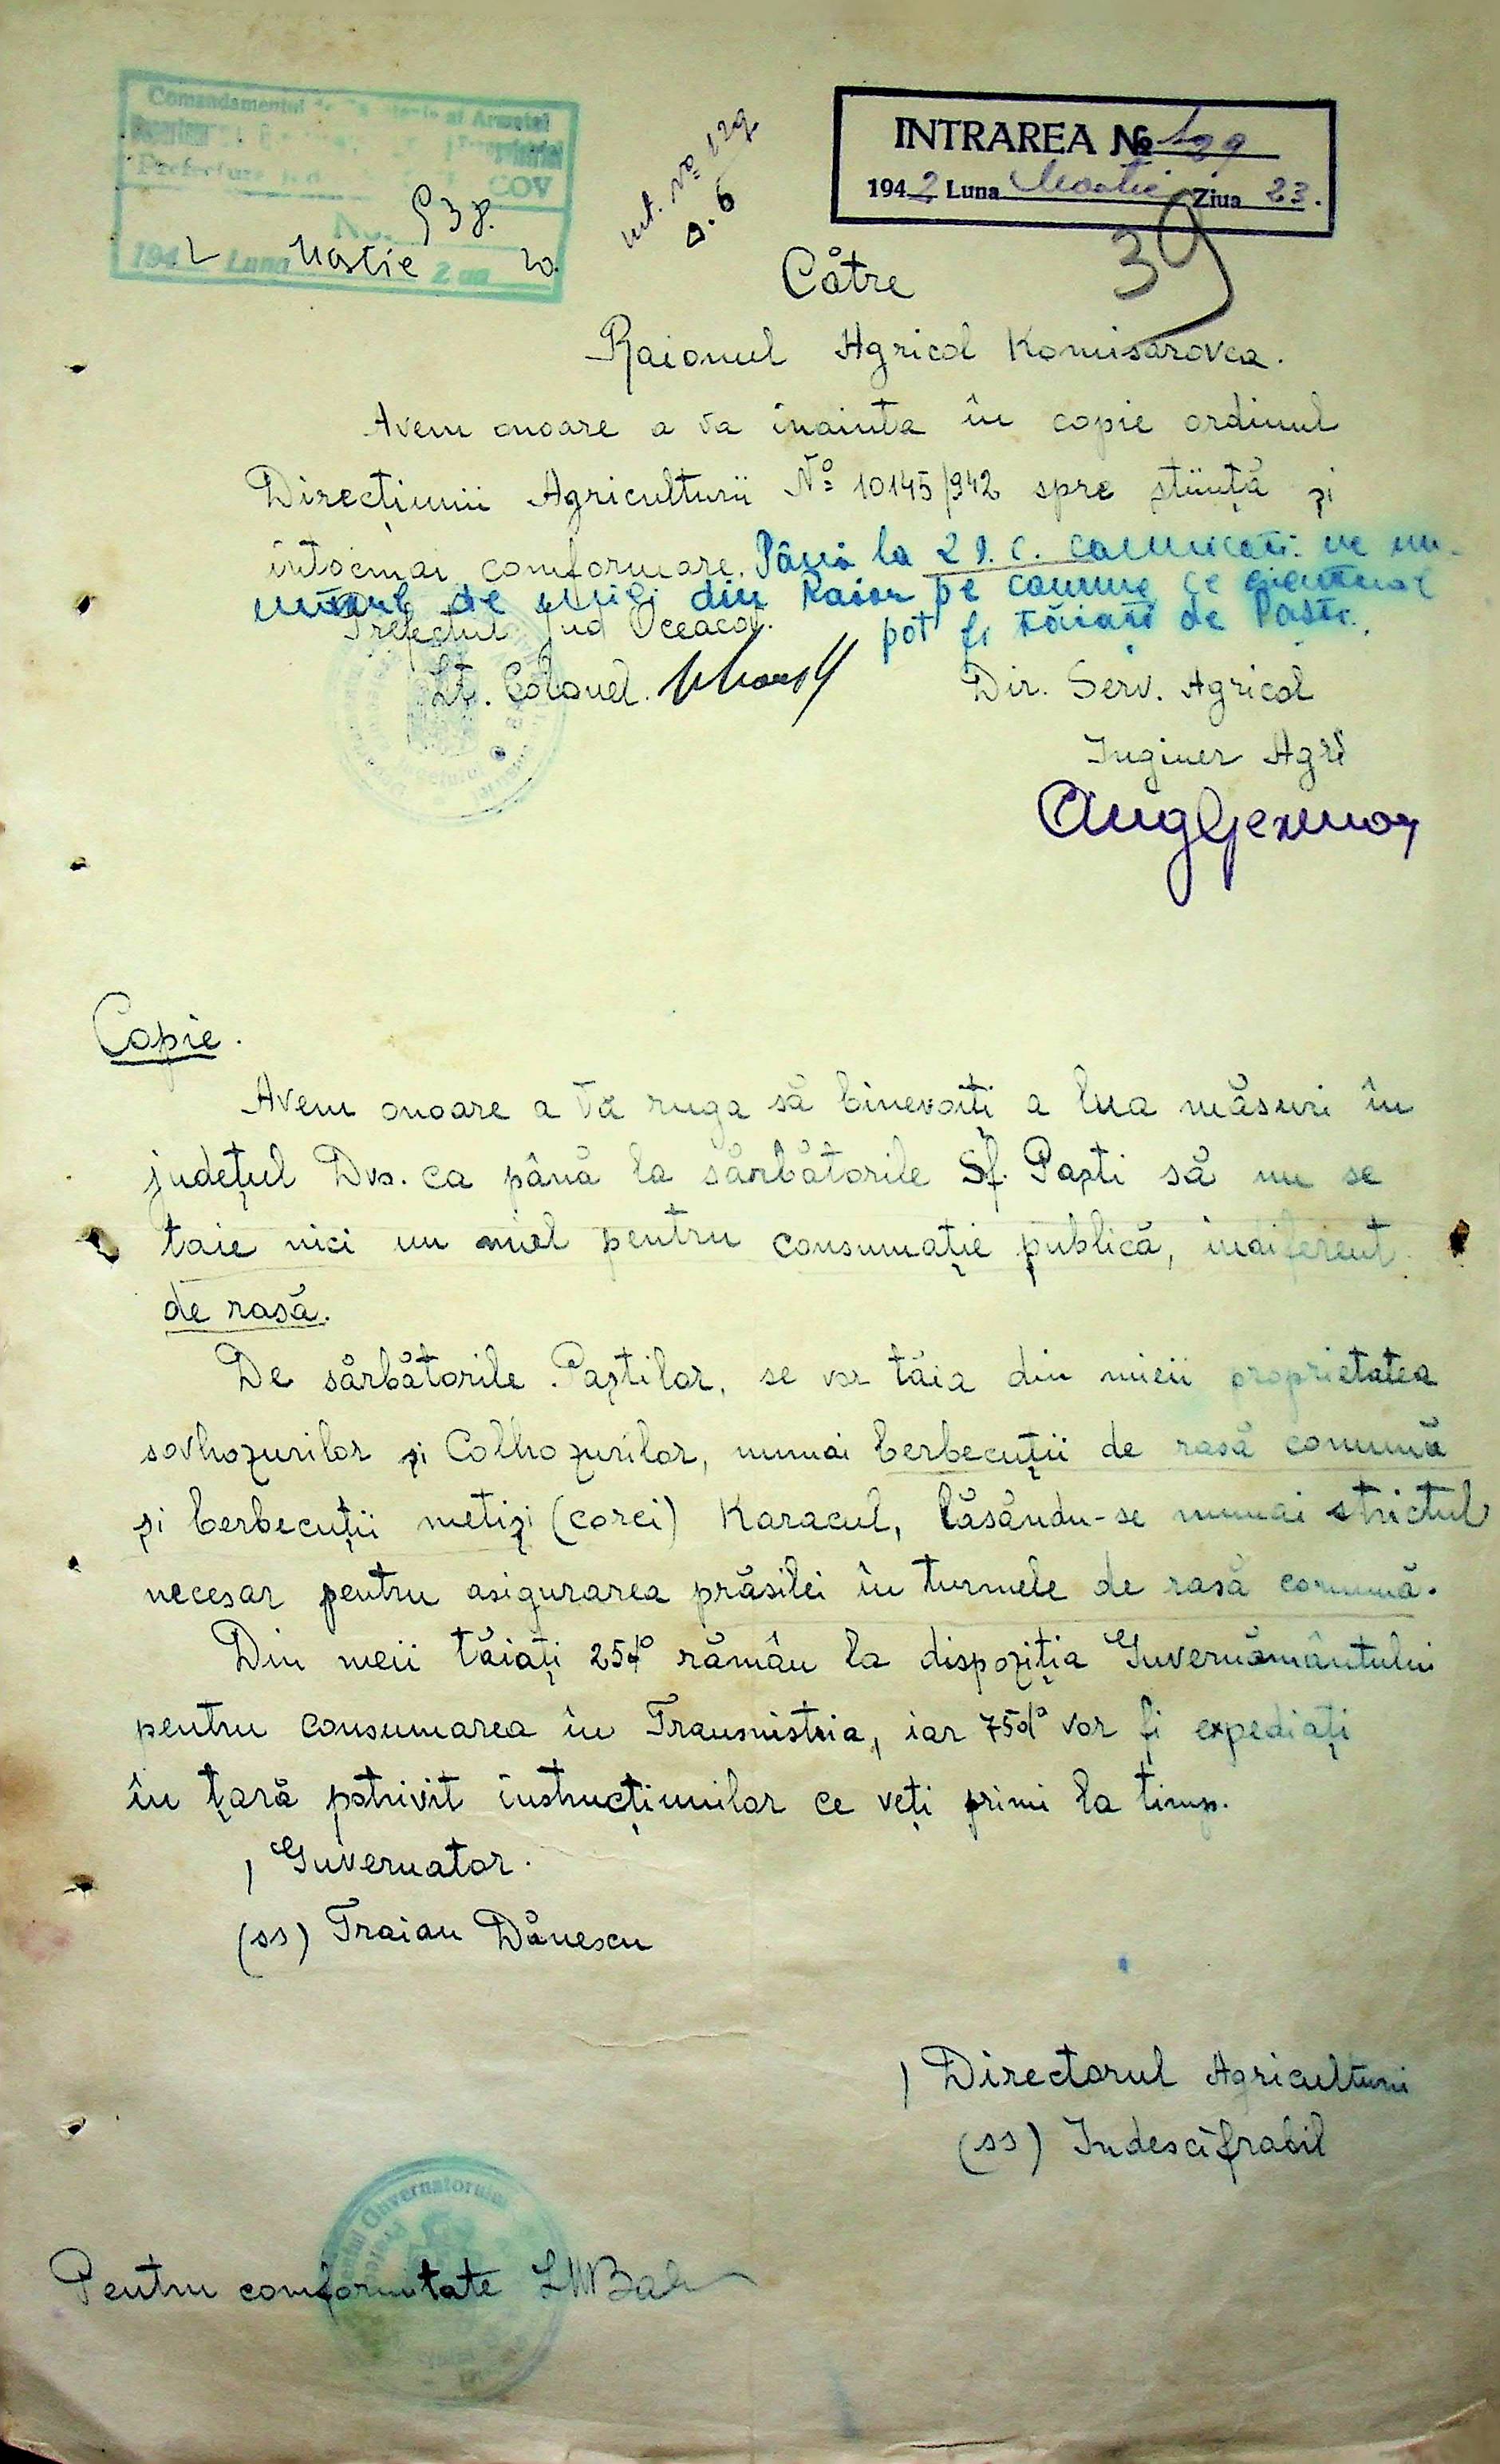 Comandamentul al Armatei
Prefectura COV
No. 938.
1942 Luna Martie Ziua 20.
int. No 129
D. 6
INTRAREA No 129
1942 Luna Martie Ziua 23.
39
Către
Raionul Agricol Komisarovca.
Avem onoare a va inainta în copie ordinul
Direcțiunii Agriculturii No 10145/942 spre știință și
intocmai conformare. Până la 29.c. comunicati ne nu-
mărul de miei din Raion pe comune ce eventual
pot fi tăiați de Paști.
Prefectul Jud Oceacof.
Lt. Colonel.
Dir. Serv. Agricol
Inginer Agr
Copie.
Avem onoare a Vă ruga să binevoiți a lua măsuri în
județul Dvs. ca până la sărbătorile Sf. Paști să nu se
taie nici un miel pentru consumație publică, indiferent
de rasă.
De sărbătorile Paștilor, se vor tăia din mieii proprietatea
sovhozurilor și Colhozurilor, numai berbecuții de rasă comună
și berbecuții metiși (corci) Karacul, lăsându-se numai strictul
necesar pentru asigurarea prăsilei în turmele de rasă comună.
Din meii tăiați 25% rămân la dispoziția Guvernământului
pentru consumarea în Transnistria, iar 75% vor fi expediați
în țară potrivit instrucțiunilor ce veți primi la timp.
/ Guvernator.
(ss) Traian Dănescu
/ Directorul Agriculturii
(ss) Indescifrabil
Guvernatorului
Pentru conformitate